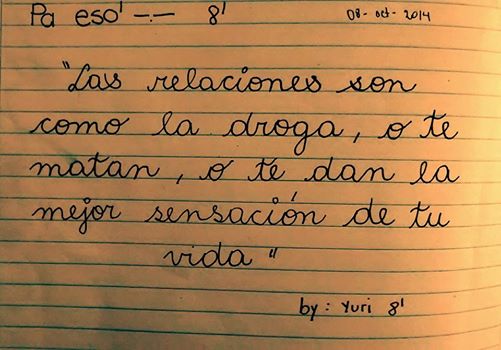 Pa eso' -.- 8' 08-oct-2014
"Las relaciones son
como la droga, o te
matan, o te dan la
mejor sensación de tu
vida"
by: Yuri 8'